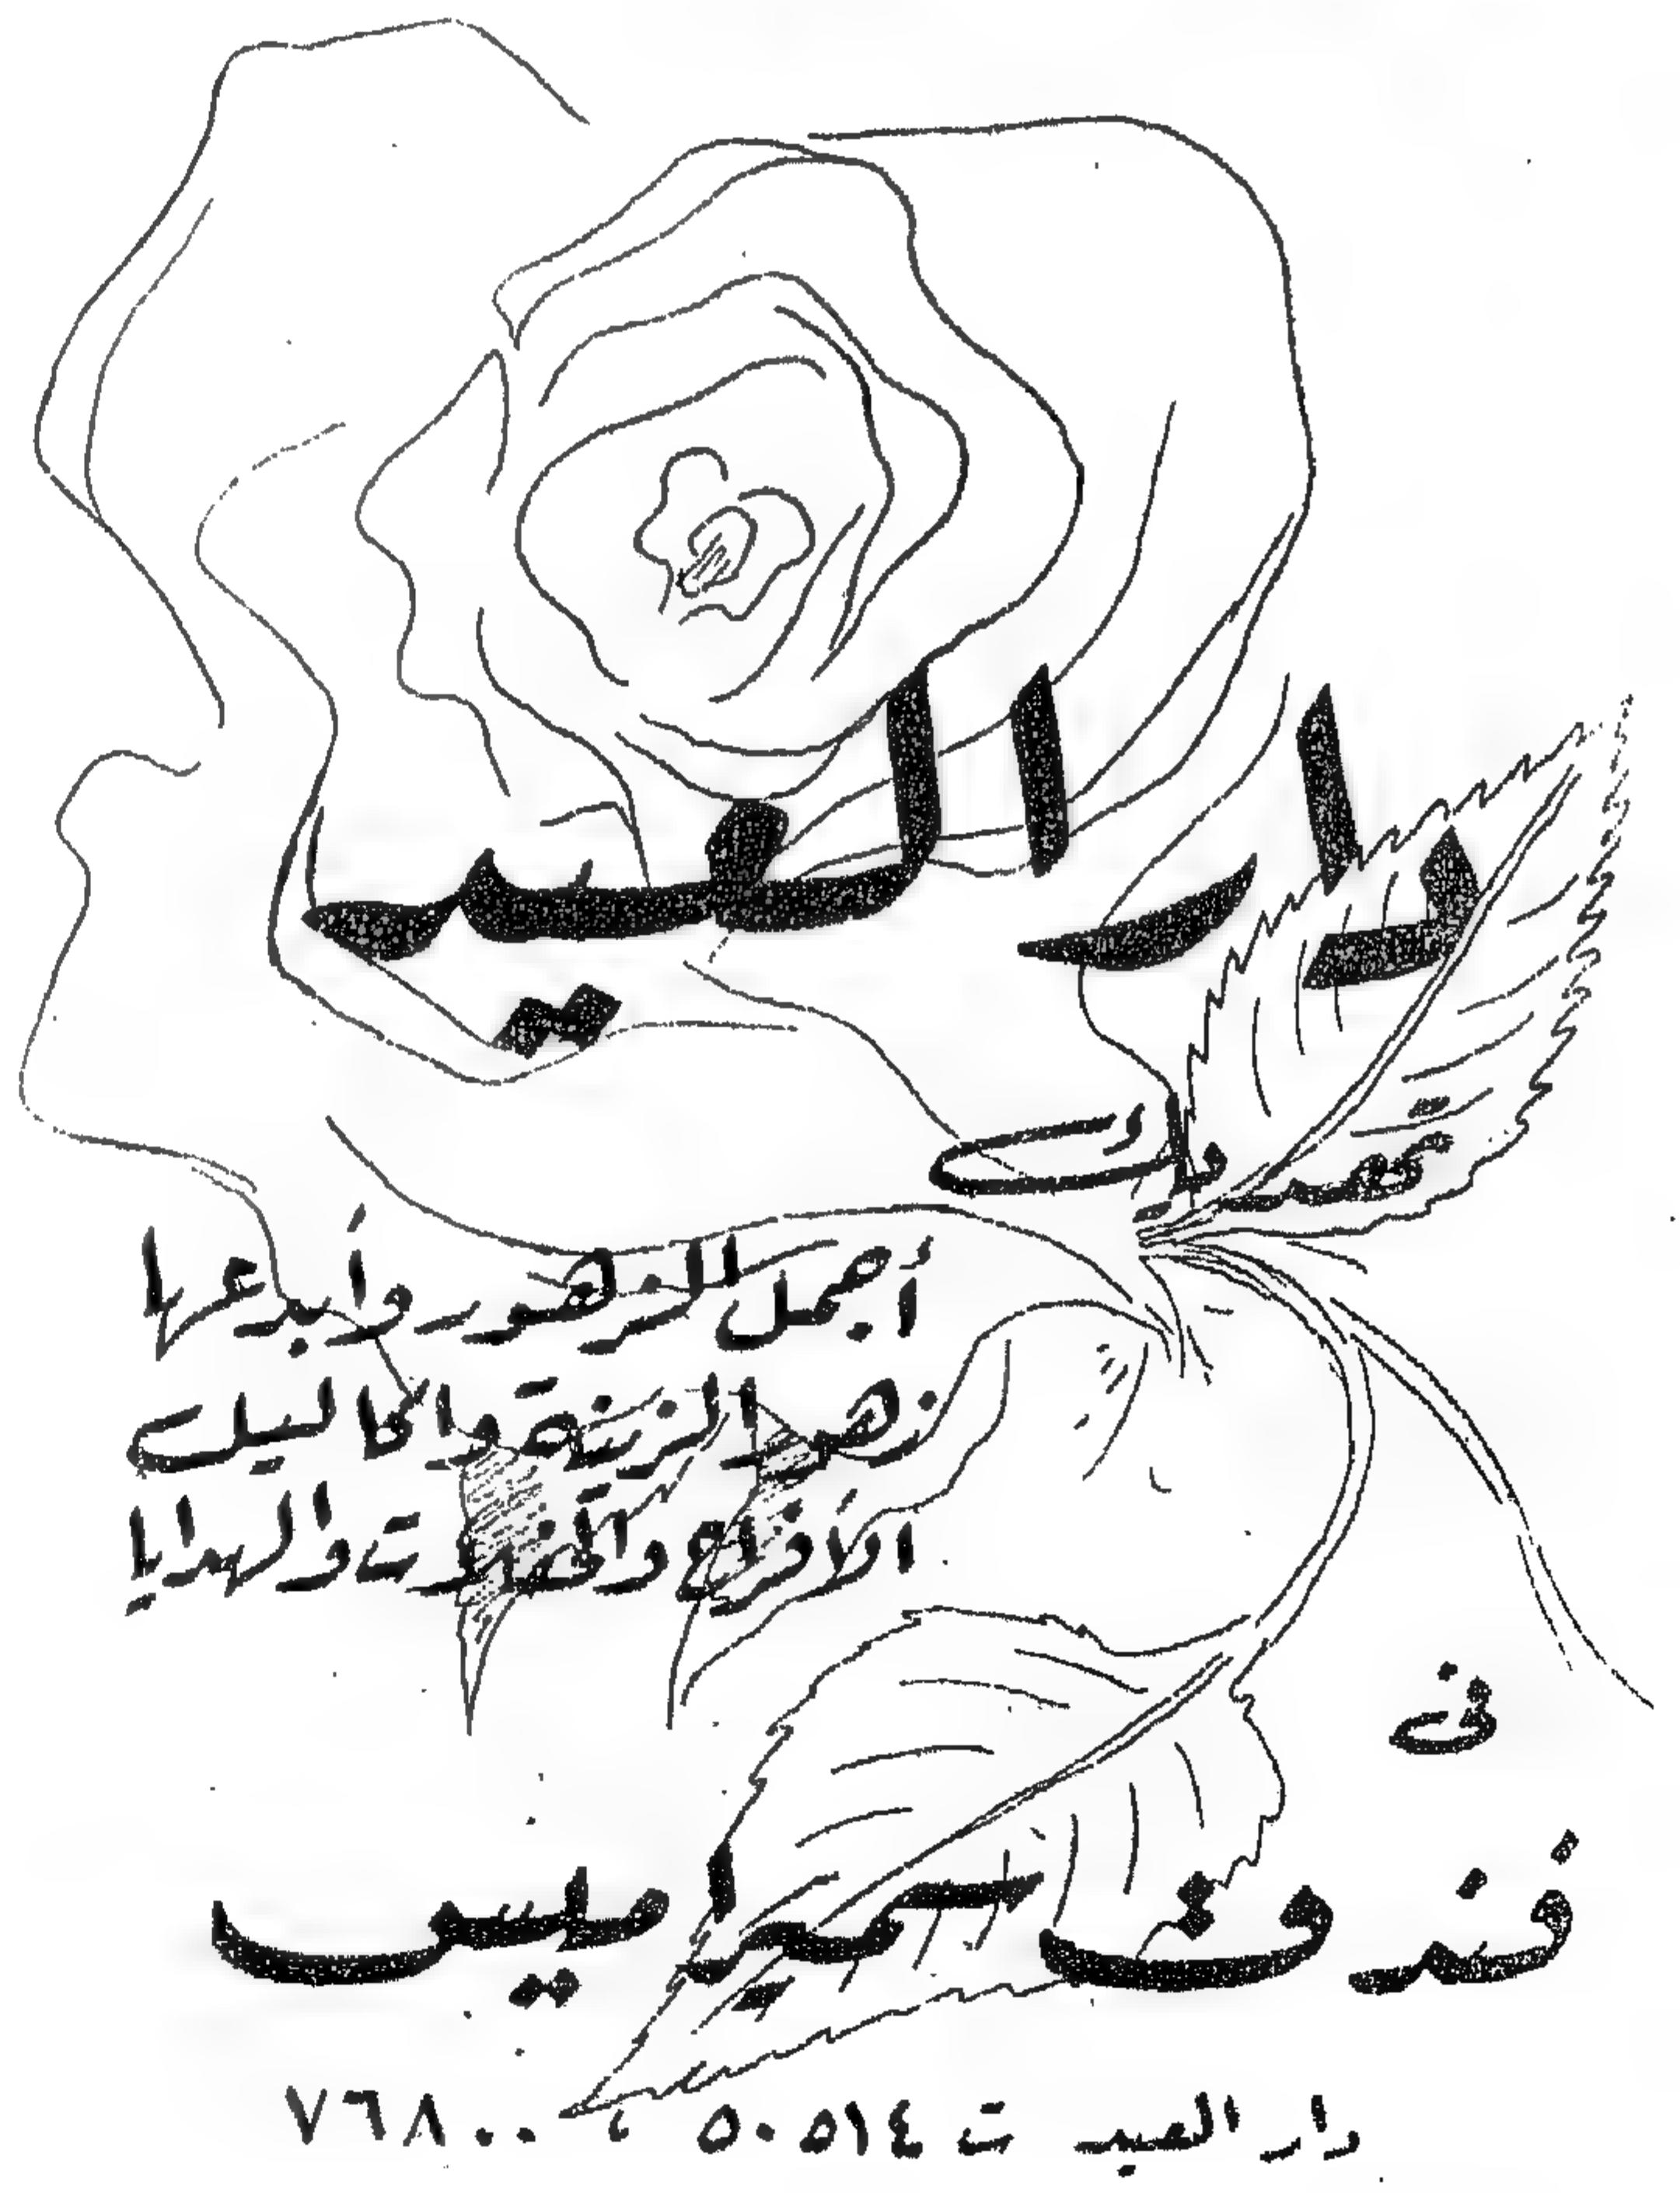 دار العيد
تقدم لك
أجمل الزهور وأبدعها
زهور الزينة واكاليل
الأفراح والحفلات والهدايا
فى
فندق سميراميس
دار العيد ت ٥٠٥١٤ ، ٧٦٨٠٠